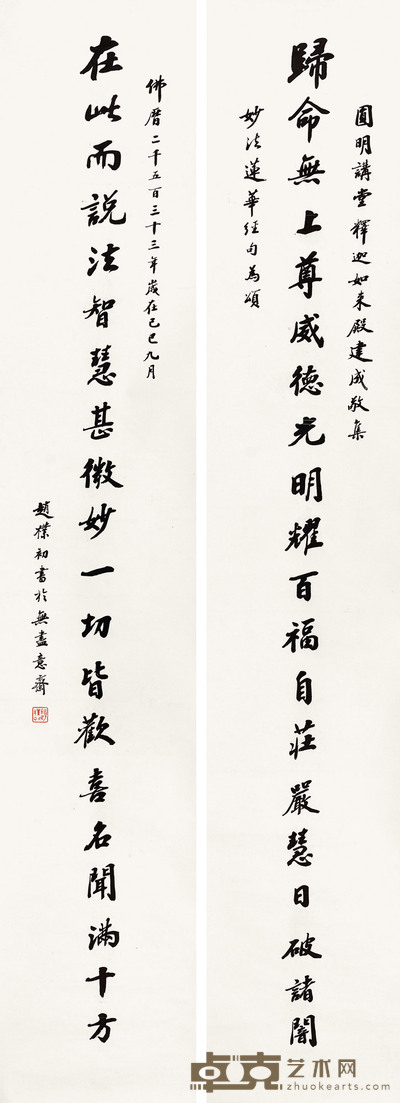 圓明講堂釋迦如来殿建成敬集
歸命無上尊威德光明耀百福自莊嚴慧日破諸闇
妙法蓮華经句為頌
佛曆二千五百三十三年歲在己巳九月
在此而説法智慧甚微妙一切皆歡喜名聞滿十方
趙樸初書於無盡意齋
卓克艺术网
zhuokearts.com